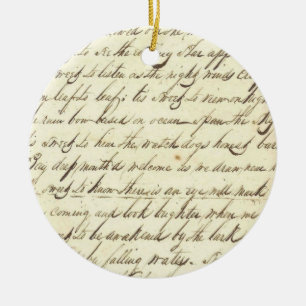 to see the evening star app
sweet to listen as the night winds cre
m leaf to leaf; tis sweet to view on high
rain bow based on ocean span the sky
tis sweet to hear the watch dogs honest bar
Bay deep mouth'd welcome as we draw near
sweet to know there is an eye will mark
coming and look brighter when we
t to be awakened by the lark
falling waters.